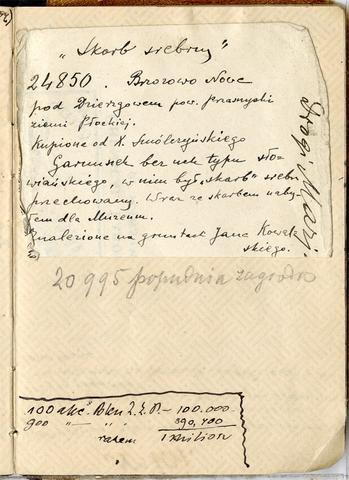 „Skarb srebrny”
24850. Brzozowo Nowe
pod Dzierzgowem pow. Przasnyski
ziemi Płockiej.
Kupione od X. Smólczyńskiego
Garnuszek bez ucha typu sło-
wiańskiego, w nim był „skarb” srebrn
przechowany. Wraz ze skarbem naby-
łem dla Muzeum.
Znalezione na gruntach Jana Kowal
skiego.
Drogi
20 995 popielnia
100 akc. Ban Z. Z. P. – 100.000
900 — " — " 390,400
razem 1 milion